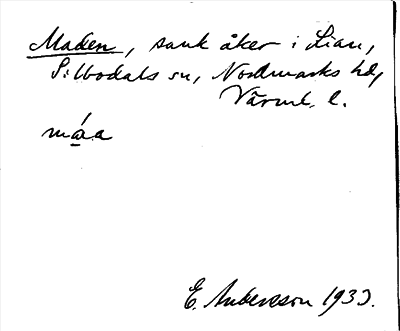 Maden, sank åker i Lian,
Silbodals sn, Nordmarks hd,
Värml. l.
máa
E. Andersson 1933.